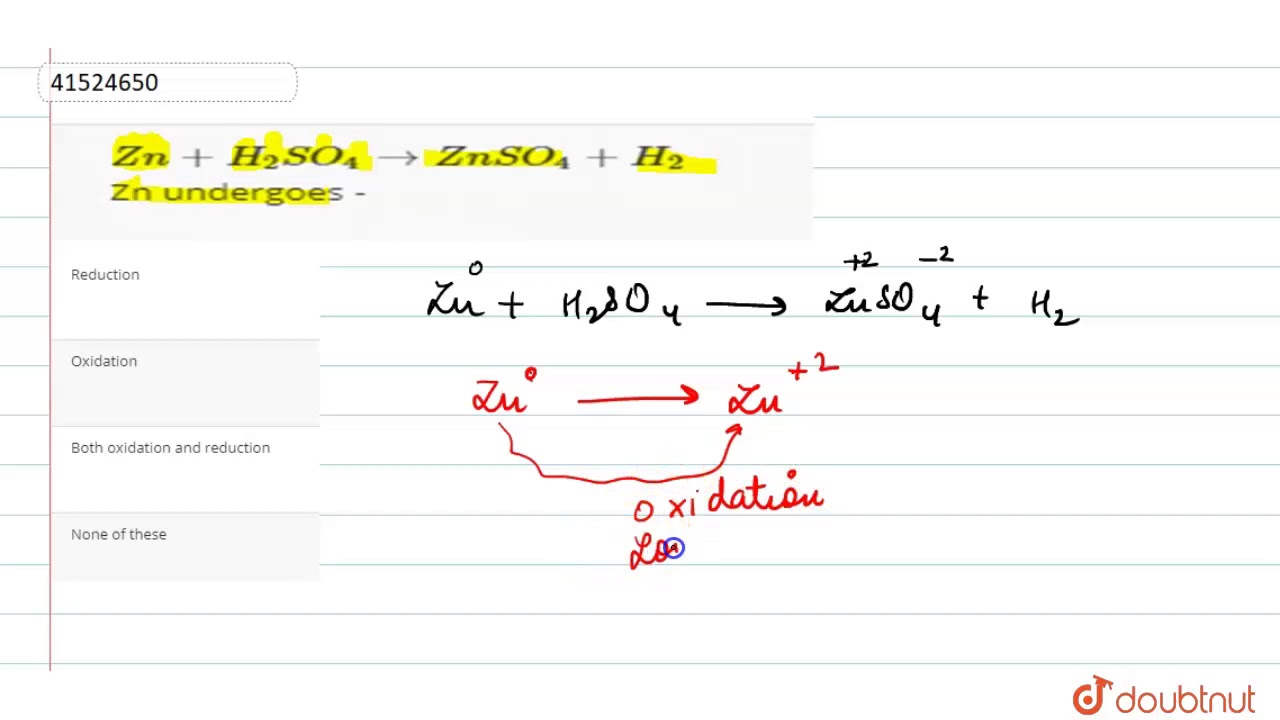 41524650
Zn + H₂SO₄ → ZnSO₄ + H₂
Zn undergoes -
Reduction
Oxidation
Both oxidation and reduction
None of these
0 +2 -2
Zn + H₂SO₄ → ZnSO₄ + H₂
Zn⁰ → Zn⁺²
Oxidation
doubtnut